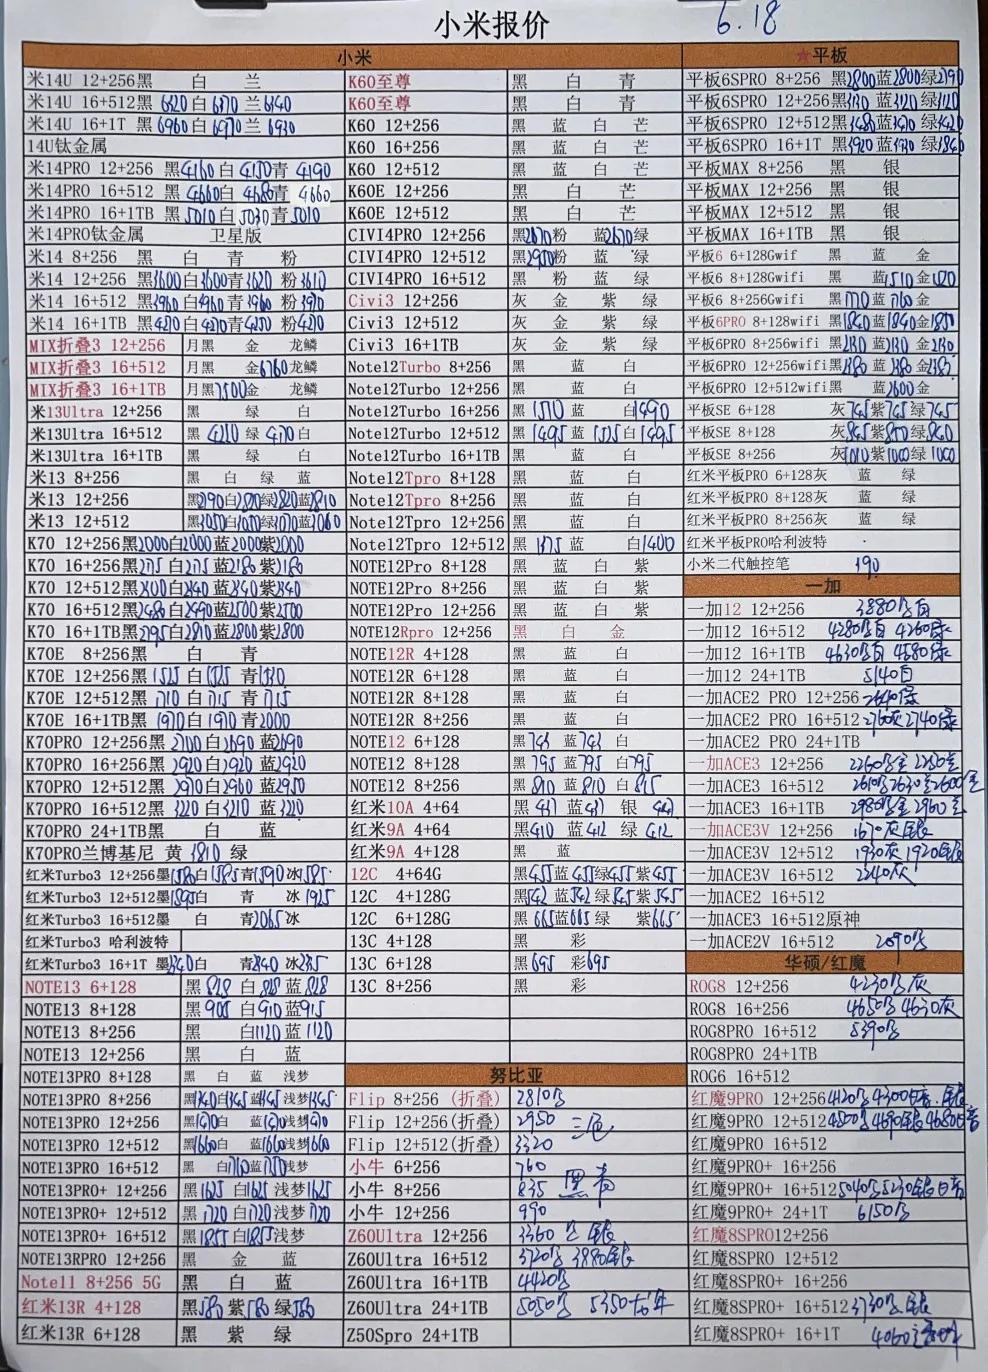 小米报价 6.18
小米
米14U 12+256黑 白 兰
米14U 16+512黑 6320白6370兰6340
米14U 16+1T 黑6960白6970兰6930
14U钛金属
米14PRO 12+256 黑4160白4150青4190
米14PRO 16+512 黑4660白4680青4660
米14PRO 16+1TB 黑5010白5030青5010
米14PRO钛金属 卫星版
米14 8+256 黑 白 青 粉
米14 12+256 黑3600白3600青3620粉3610
米14 16+512 黑3960白3960青3960粉3970
米14 16+1TB 黑4270白4270青4250粉4270
MIX折叠3 12+256 月黑 金 龙鳞
MIX折叠3 16+512 月黑 金6760龙鳞
MIX折叠3 16+1TB 月黑7500金 龙鳞
米13Ultra 12+256 黑 绿 白
米13Ultra 16+512 黑 4210 绿 4170白
米13Ultra 16+1TB 黑 绿 白
米13 8+256 黑 白 绿 蓝
米13 12+256 黑2790白2820绿2820蓝2810
米13 12+512 黑3050白3070绿3070蓝3060
K70 12+256黑2000白2000蓝2000紫2000
K70 16+256黑2175白2175蓝2180紫2180
K70 12+512黑2300白2340蓝2340紫2340
K70 16+512黑2480白2490蓝2500紫2500
K70 16+1TB黑2795白2810蓝2800紫2800
K70E 8+256黑 白 青
K70E 12+256黑1525白1525青1530
K70E 12+512黑1710白1715青1715
K70E 16+1TB黑1970白1970青2000
K70PRO 12+256黑2700白2690蓝2690
K70PRO 16+256黑2920白2920蓝2920
K70PRO 12+512黑2970白2960蓝2950
K70PRO 16+512黑3220白3210蓝3220
K70PRO 24+1TB黑 白 蓝
K70PRO兰博基尼 黄3810绿
红米Turbo3 12+256墨1580白1585青1590冰1585
红米Turbo3 12+512墨1895白 青 冰1925
红米Turbo3 16+512墨 白 青2065冰
红米Turbo3 哈利波特
红米Turbo3 16+1T 墨2340白 青 冰
NOTE13 6+128 黑828白828蓝828
NOTE13 8+128 黑905白910蓝915
NOTE13 8+256 黑 白1120蓝1120
NOTE13 12+256 黑 白 蓝
NOTE13PRO 8+128 黑 白 蓝 浅梦
NOTE13PRO 8+256 黑1340白1345蓝1345浅梦1345
NOTE13PRO 12+256 黑1470白 蓝 浅梦1470
NOTE13PRO 12+512 黑1660白 蓝1660浅梦1660
NOTE13PRO 16+512 黑 白1710蓝1750浅梦
NOTE13PRO+ 12+256 黑1625白1625浅梦1625
NOTE13PRO+ 12+512 黑1720白1720浅梦1720
NOTE13PRO+ 16+512 黑1855白1855浅梦
NOTE13RPRO 12+256 黑 金 蓝
Note11 8+256 5G 黑 白 蓝
红米13R 4+128 黑580紫580绿580
红米13R 6+128 黑 紫 绿
K60至尊 黑 白 青
K60至尊 黑 白 青
K60 12+256 黑 蓝 白 芒
K60 16+256 黑 蓝 白 芒
K60 12+512 黑 蓝 白 芒
K60E 12+256 黑 白 芒
K60E 12+512 黑 白 芒
CIVI4PRO 12+256 黑2670粉 蓝2670绿
CIVI4PRO 12+512 黑2950粉 蓝 绿
CIVI4PRO 16+512 黑 粉 蓝 绿
Civi3 12+256 灰 金 紫 绿
Civi3 12+512 灰 金 紫 绿
Civi3 16+1TB 灰 金 紫 绿
Note12Turbo 8+256 黑 蓝 白
Note12Turbo 12+256 黑 蓝 白
Note12Turbo 16+256 黑1510蓝 白1490
Note12Turbo 12+512 黑1495蓝1525白1495
Note12Turbo 16+1TB 黑 蓝 白
Note12Tpro 8+128 黑 蓝 白
Note12Tpro 8+256 黑 蓝 白
Note12Tpro 12+256 黑 蓝 白
Note12Tpro 12+512 黑1375蓝 白1400
NOTE12Pro 8+128 黑 蓝 白 紫
NOTE12Pro 8+256 黑 蓝 白 紫
NOTE12Pro 12+256 黑 蓝 白 紫
NOTE12Rpro 12+256 黑 白 金
NOTE12R 4+128 黑 蓝 白
NOTE12R 6+128 黑 蓝 白
NOTE12R 8+128 黑 蓝 白
NOTE12R 8+256 黑 蓝 白
NOTE12 6+128 黑743蓝743白
NOTE12 8+128 黑795蓝795白795
NOTE12 8+256 黑810蓝810白815
红米10A 4+64 黑437蓝437银442
红米9A 4+64 黑410蓝412绿412
红米9A 4+128 黑 蓝
12C 4+64G 黑455蓝455绿455紫455
12C 4+128G 黑542蓝542绿545紫545
12C 6+128G 黑665蓝665绿 紫665
13C 4+128 黑 彩
13C 6+128 黑695彩695
13C 8+256 黑 彩
努比亚
Flip 8+256 (折叠) 2810
Flip 12+256(折叠) 2950 三色
Flip 12+512(折叠) 3320
小牛 6+256 760
小牛 8+256 835 黑青
小牛 12+256 990
Z60Ultra 12+256 3360 银
Z60Ultra 16+512 3720黑 3880银
Z60Ultra 16+1TB 4420黑
Z60Ultra 24+1TB 5050黑 5350
Z50Spro 24+1TB
★平板
平板6SPRO 8+256 黑2800蓝2800绿2790
平板6SPRO 12+256黑3130蓝3120绿3120
平板6SPRO 12+512黑3480蓝3470绿3420
平板6SPRO 16+1T 黑3920蓝3930绿3860
平板MAX 8+256 黑 银
平板MAX 12+256 黑 银
平板MAX 12+512 黑 银
平板MAX 16+1TB 黑 银
平板6 6+128Gwif 黑 蓝 金
平板6 8+128Gwifi 黑 蓝1510金1520
平板6 8+256Gwifi 黑1770蓝1760金
平板6PRO 8+128wifi 黑1840蓝1840金1850
平板6PRO 8+256wifi 黑2130蓝2130金2130
平板6PRO 12+256wifi黑2380蓝2380金2385
平板6PRO 12+512wifi黑 蓝2600金
平板SE 6+128 灰745紫745绿745
平板SE 8+128 灰845紫850绿840
平板SE 8+256 灰1010紫1000绿1000
红米平板PRO 6+128灰 蓝 绿
红米平板PRO 8+128灰 蓝 绿
红米平板PRO 8+256灰 蓝 绿
红米平板PRO哈利波特
小米二代触控笔 190
一加
一加12 12+256 3880黑白
一加12 16+512 4280黑白 4260绿
一加12 16+1TB 4630黑白 4580绿
一加12 24+1TB 5140白
一加ACE2 PRO 12+256 2640绿
一加ACE2 PRO 16+512 2760灰2740绿
一加ACE2 PRO 24+1TB
一加ACE3 12+256 2260黑金 2250蓝
一加ACE3 16+512 2610黑2630蓝2600金
一加ACE3 16+1TB 2980黑金 2960蓝
一加ACE3V 12+256 1670灰银
一加ACE3V 12+512 1930灰 1920银
一加ACE3V 16+512 2340灰
一加ACE2 16+512
一加ACE3 16+512原神
一加ACE2V 16+512 2090黑
华硕/红魔
ROG8 12+256 4230黑灰
ROG8 16+256 4650黑 4630灰
ROG8PRO 16+512 5390黑
ROG8PRO 24+1TB
ROG6 16+512
红魔9PRO 12+256 4120黑 4300
红魔9PRO 12+512 4500黑 4690银 4680
红魔9PRO 16+512
红魔9PRO+ 16+256
红魔9PRO+ 16+512 5040黑5230银白
红魔9PRO+ 24+1T 6150黑
红魔8SPRO12+256
红魔8SPRO 12+512
红魔8SPRO+ 16+256
红魔8SPRO+ 16+512 3730黑 银
红魔8SPRO+ 16+1T 4060